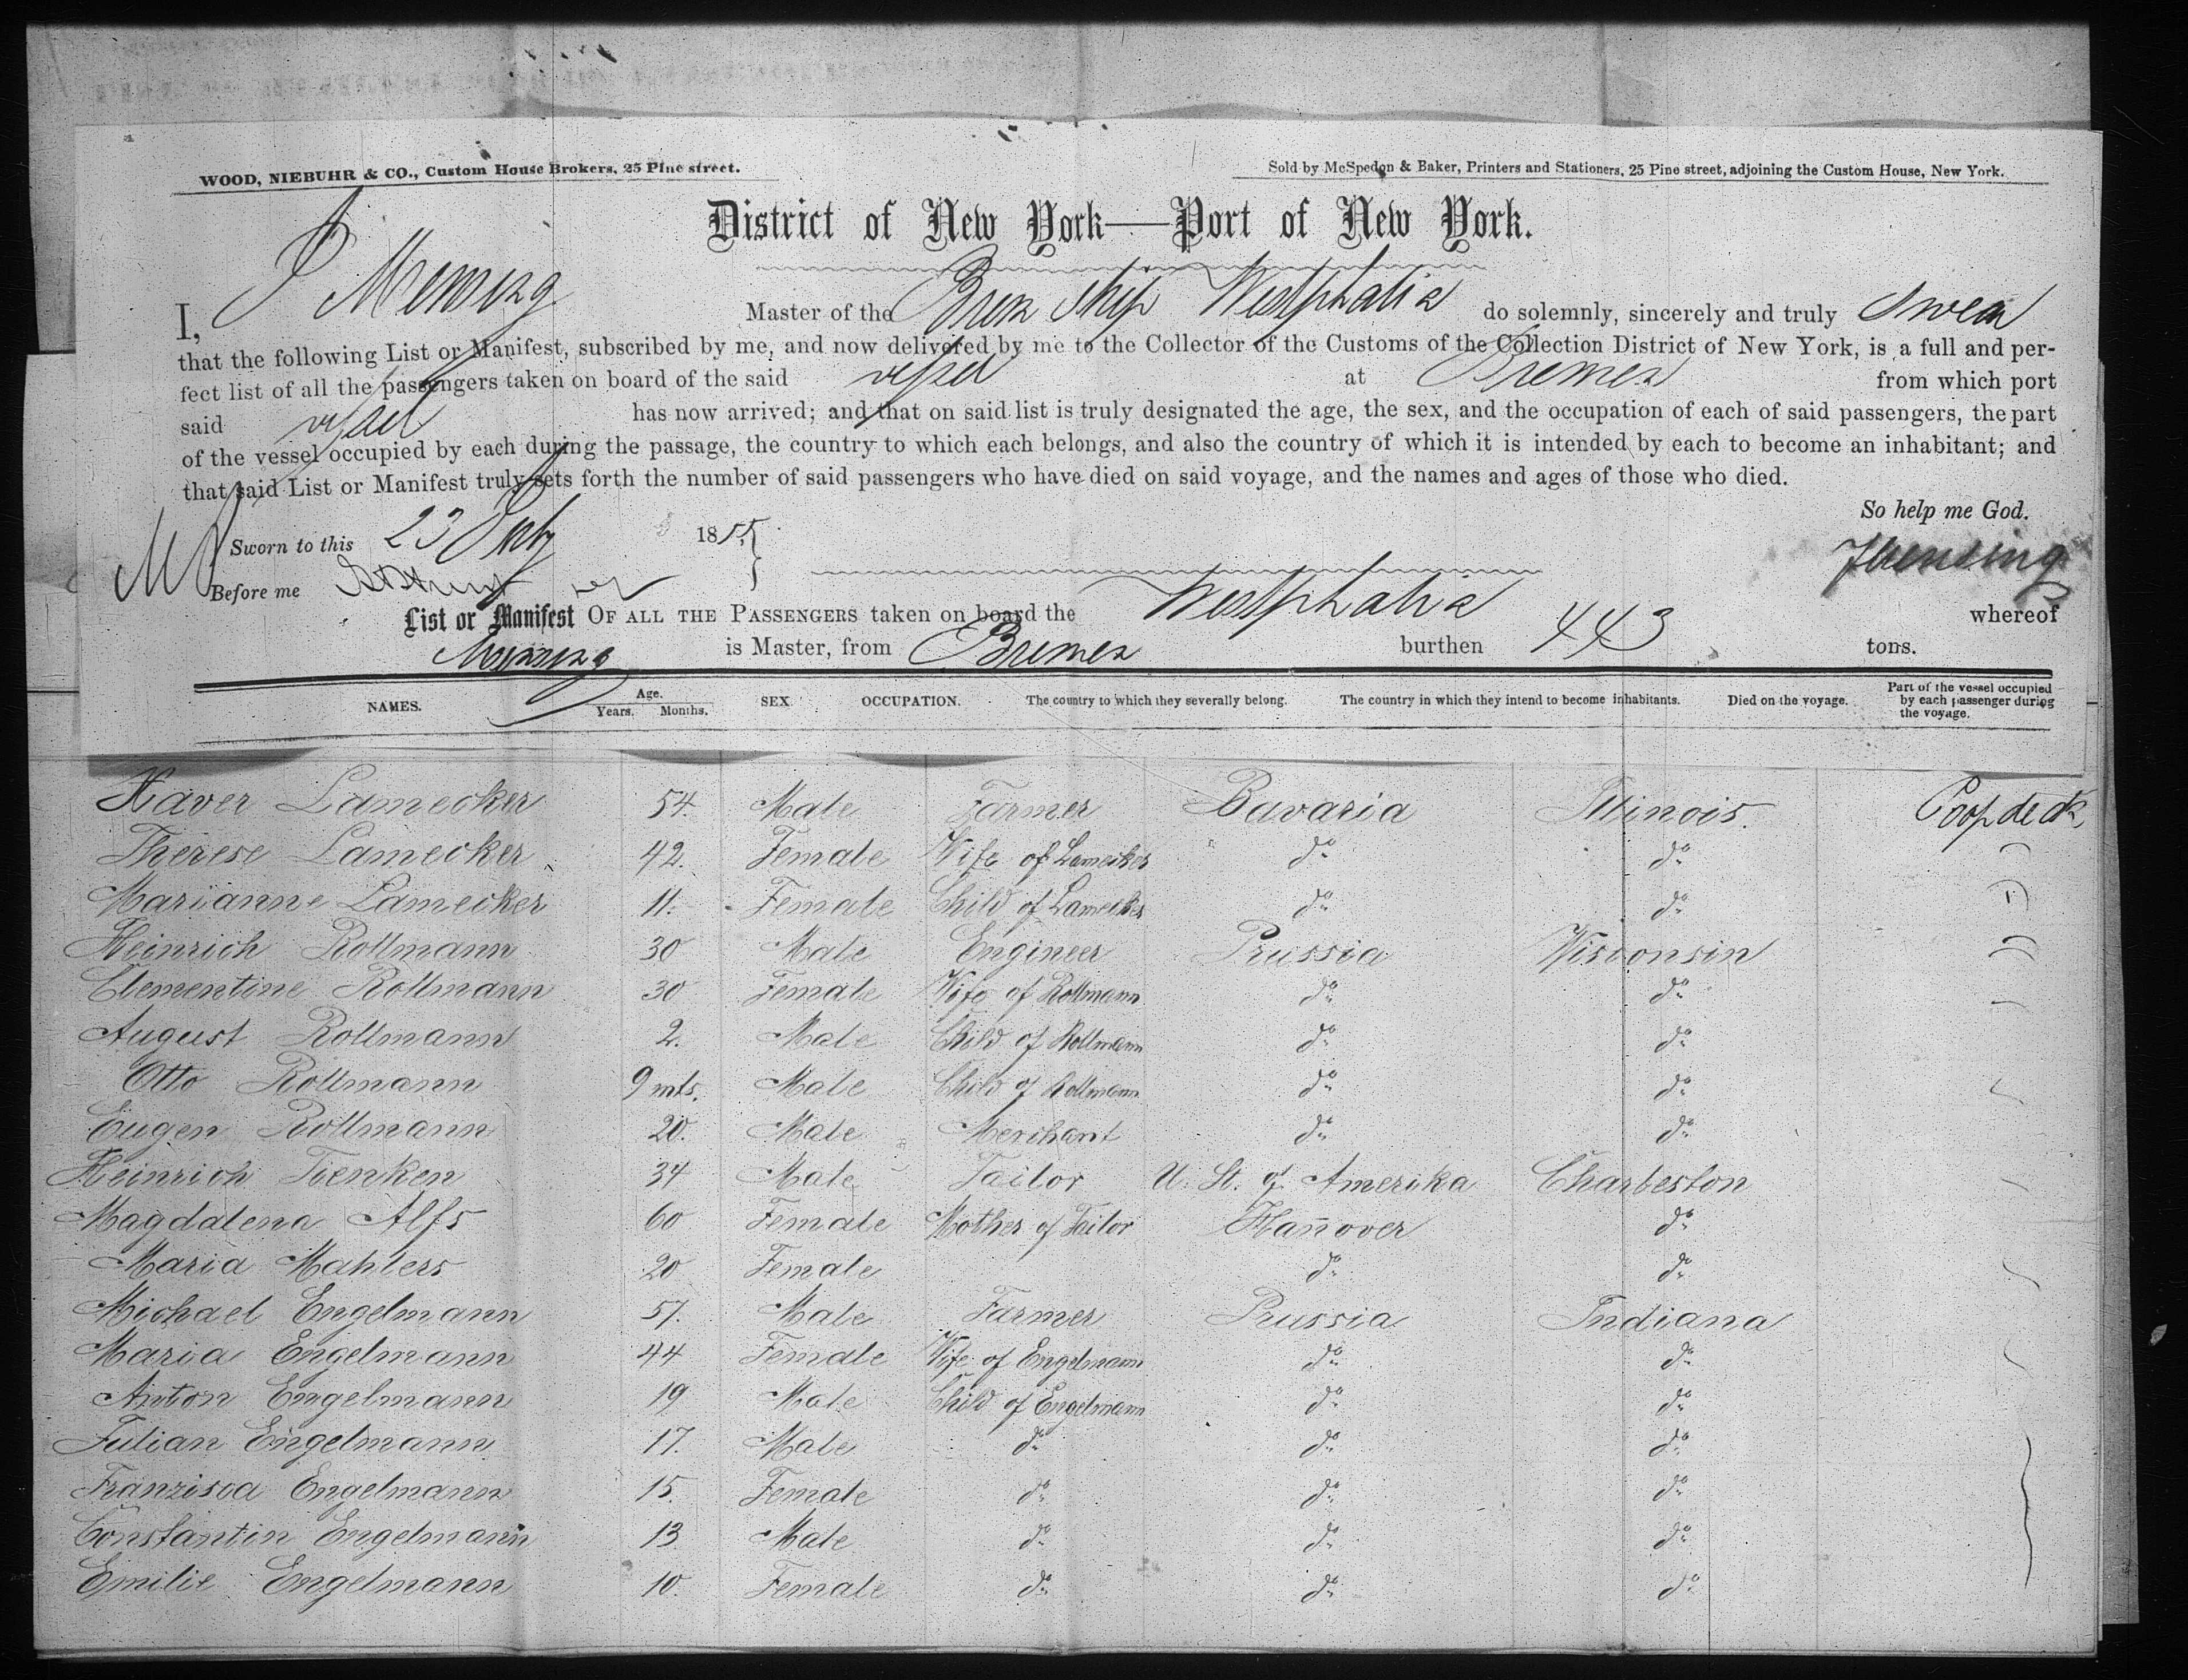 WOOD, NIEBUHR & CO., Custom House Brokers, 25 Pine street.
Sold by McSpedon & Baker, Printers and Stationers, 25 Pine street, adjoining the Custom House, New York.
District of New York—Port of New York.
I, Mensing Master of the Brem Ship Westphalia do solemnly, sincerely and truly swear
that the following List or Manifest, subscribed by me, and now delivered by me to the Collector of the Customs of the Collection District of New York, is a full and per-
fect list of all the passengers taken on board of the said vessel at Bremen from which port
said vessel has now arrived; and that on said list is truly designated the age, the sex, and the occupation of each of said passengers, the part
of the vessel occupied by each during the passage, the country to which each belongs, and also the country of which it is intended by each to become an inhabitant; and
that said List or Manifest truly sets forth the number of said passengers who have died on said voyage, and the names and ages of those who died.
So help me God.
Sworn to this 23 July 1855
Mensing
Before me
List or Manifest OF ALL THE PASSENGERS taken on board the Westphalia whereof
Mensing is Master, from Bremen burthen 443 tons.
NAMES. Age. Years. Months. SEX. OCCUPATION. The country to which they severally belong. The country in which they intend to become inhabitants. Died on the voyage. Part of the vessel occupied by each passenger during the voyage.
Xaver Lamecker 54. Male Farmer Bavaria Illinois. Poop deck
Therese Lamecker 42. Female Wife of Lamecker do do
Marianne Lamecker 11. Female Child of Lamecker do do
Heinrich Rollmann 30 Male Engineer Prussia Wisconsin
Clementine Rollmann 30 Female Wife of Rollmann do do
August Rollmann 2. Male Child of Rollmann do do
Otto Rollmann 9 mts. Male Child of Rollmann do do
Eugen Rollmann 20. Male Merchant do do
Heinrich Tienken 34 Male Tailor U. St. of Amerika Charleston
Magdalena Alfs 60 Female Mother of Tailor Hanover do
Maria Mahlers 20 Female do do
Michael Engelmann 57. Male Farmer Prussia Indiana
Maria Engelmann 44 Female Wife of Engelmann do do
Anton Engelmann 19 Male Child of Engelmann do do
Julian Engelmann 17. Male do do do
Franzisca Engelmann 15. Female do do do
Constantin Engelmann 13 Male do do do
Emilie Engelmann 10. Female do do do